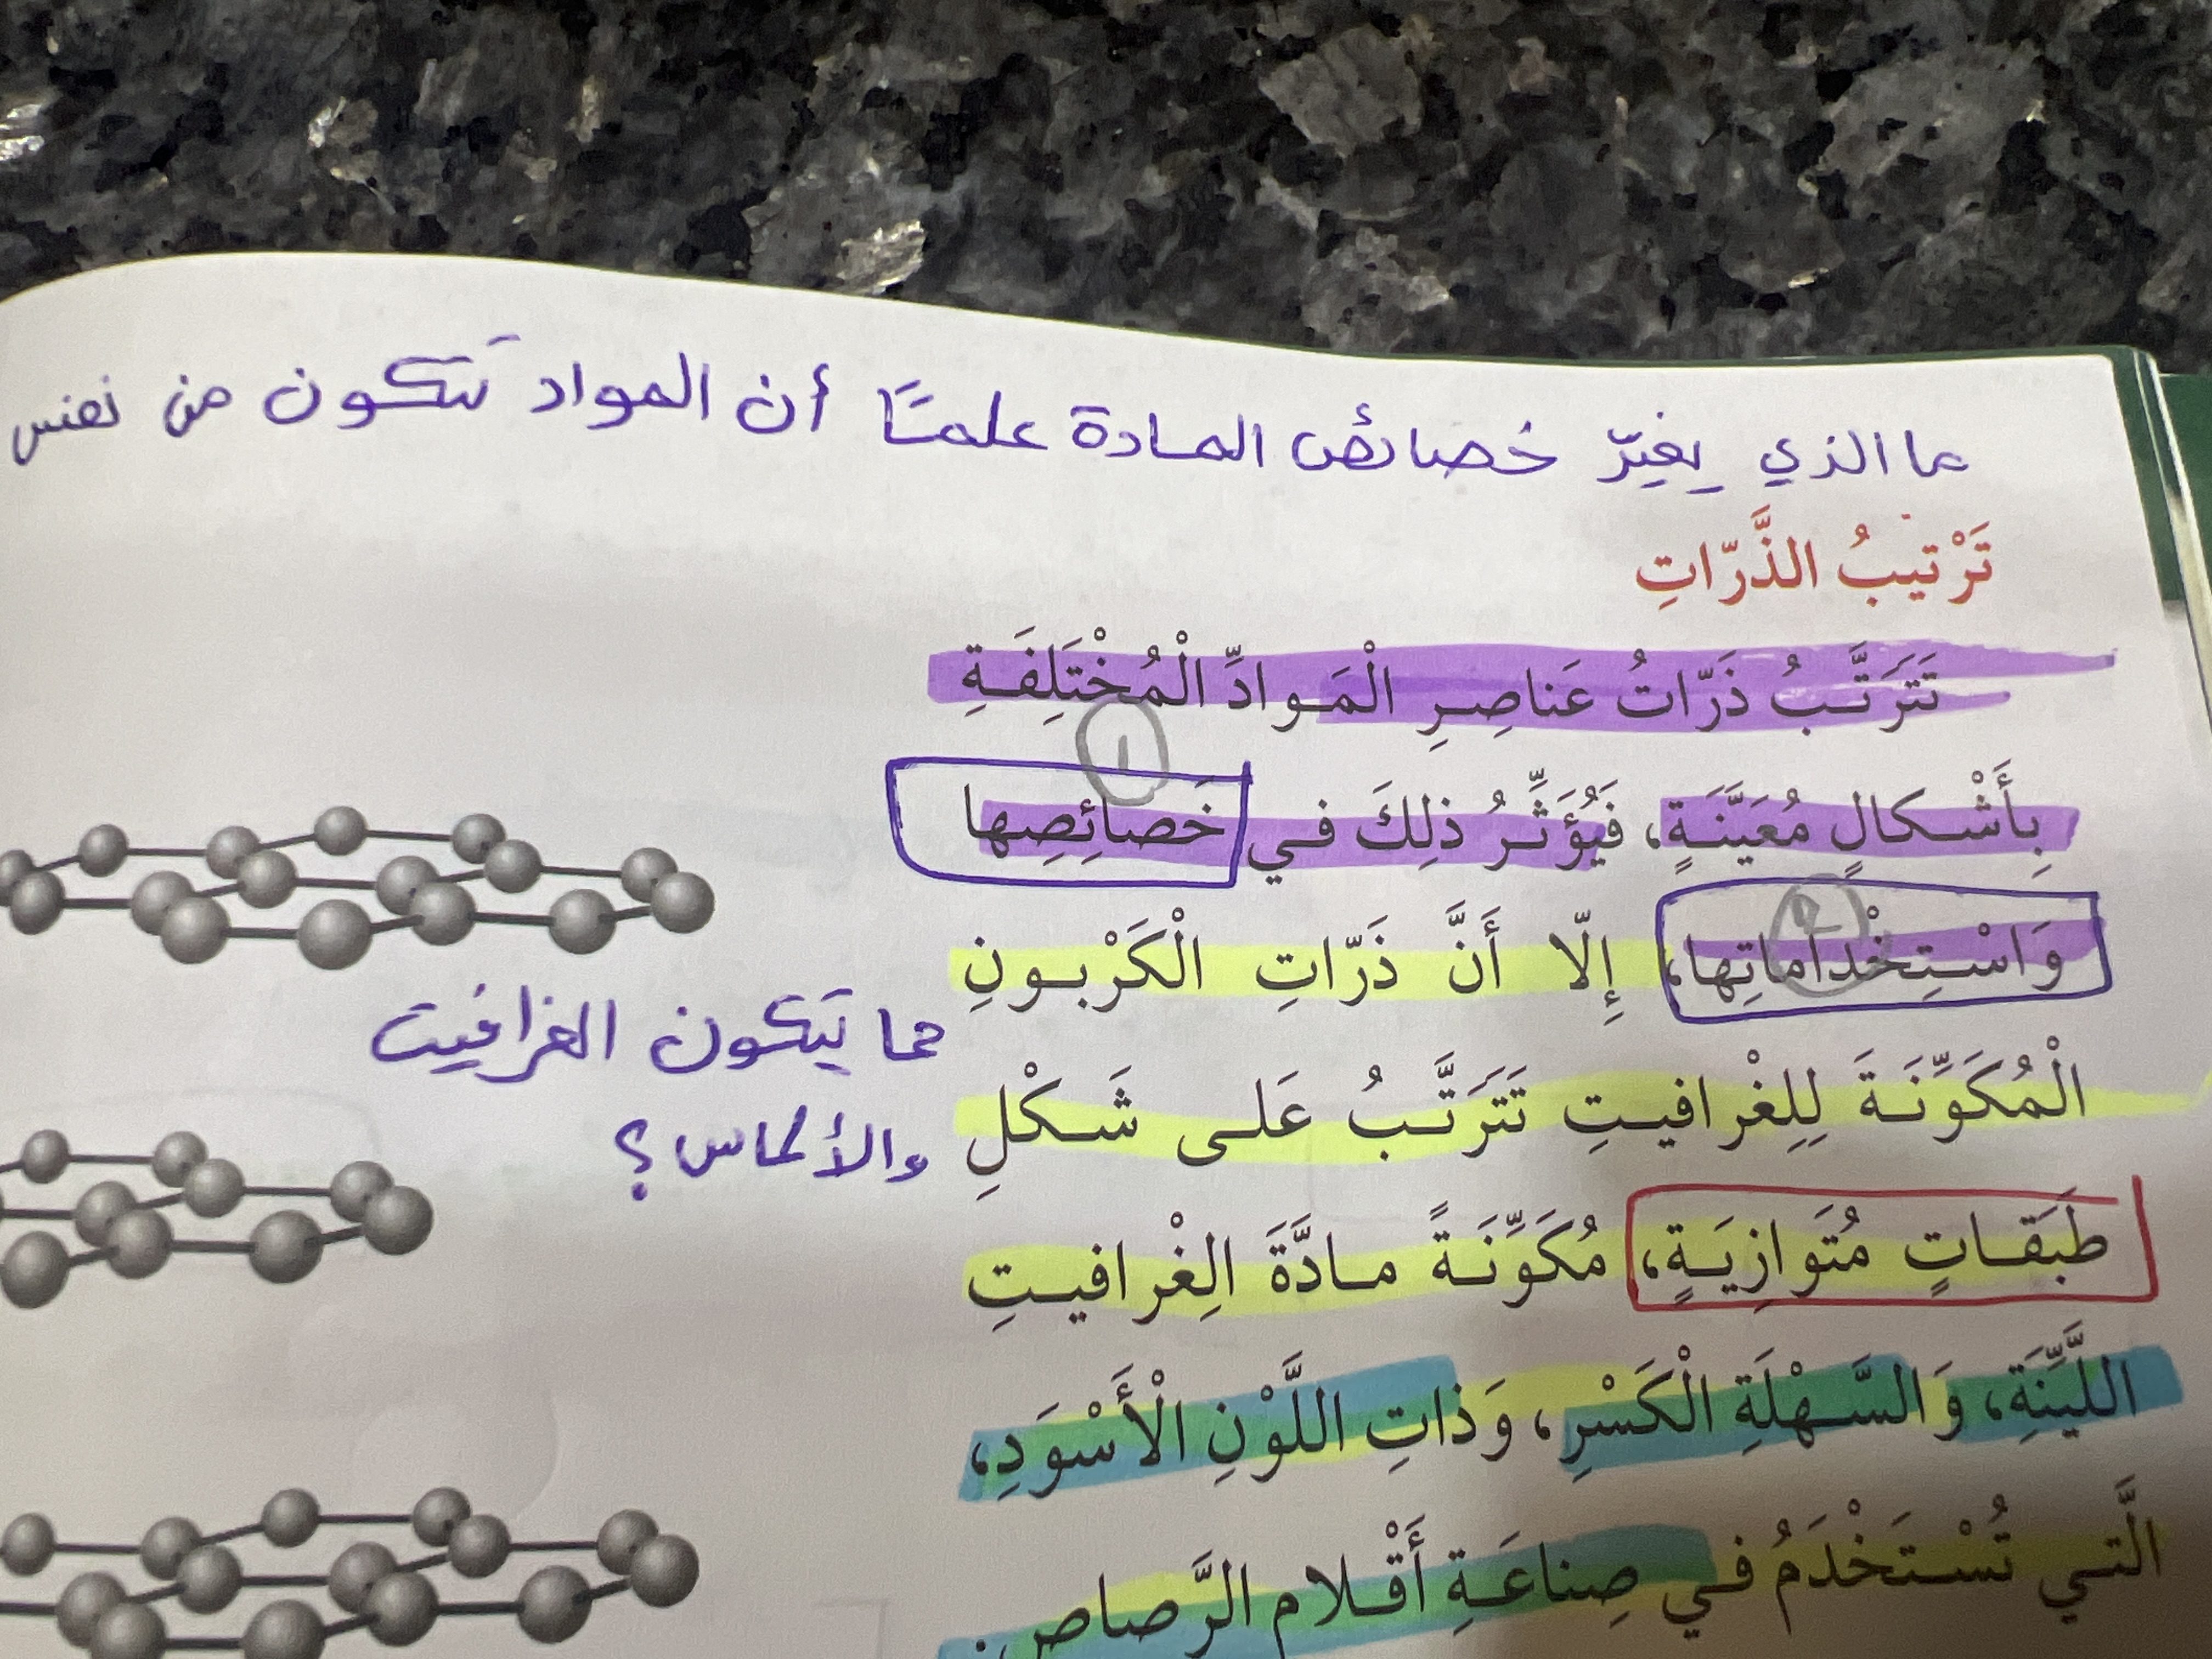 ما الذي يغيّر خصائص المادة علمًا أن المواد تتكون من نفس
تَرْتيبُ الذَّرّاتِ
تَتَرَتَّبُ ذَرّاتُ عَناصِرِ الْمَوادِّ الْمُخْتَلِفَةِ
١
بِأَشْكالٍ مُعَيَّنَةٍ، فَيُؤَثِّرُ ذلِكَ في خَصائِصِها
٢
وَاسْتِخْداماتِها، إِلّا أَنَّ ذَرّاتِ الْكَرْبونِ
مما يتكون الغرافيت
الْمُكَوِّنَةَ لِلِغْرافيتِ تَتَرَتَّبُ عَلى شَكْلِ
والألماس؟
طَبَقاتٍ مُتَوازِيَةٍ، مُكَوِّنَةً مادَّةَ الِغْرافيتِ
اللَّيِّنَةِ، وَالسَّهْلَةِ الْكَسْرِ، وَذاتِ اللَّوْنِ الْأَسْوَدِ،
الَّتي تُسْتَخْدَمُ في صِناعَةِ أَقْلامِ الرَّصاصِ.